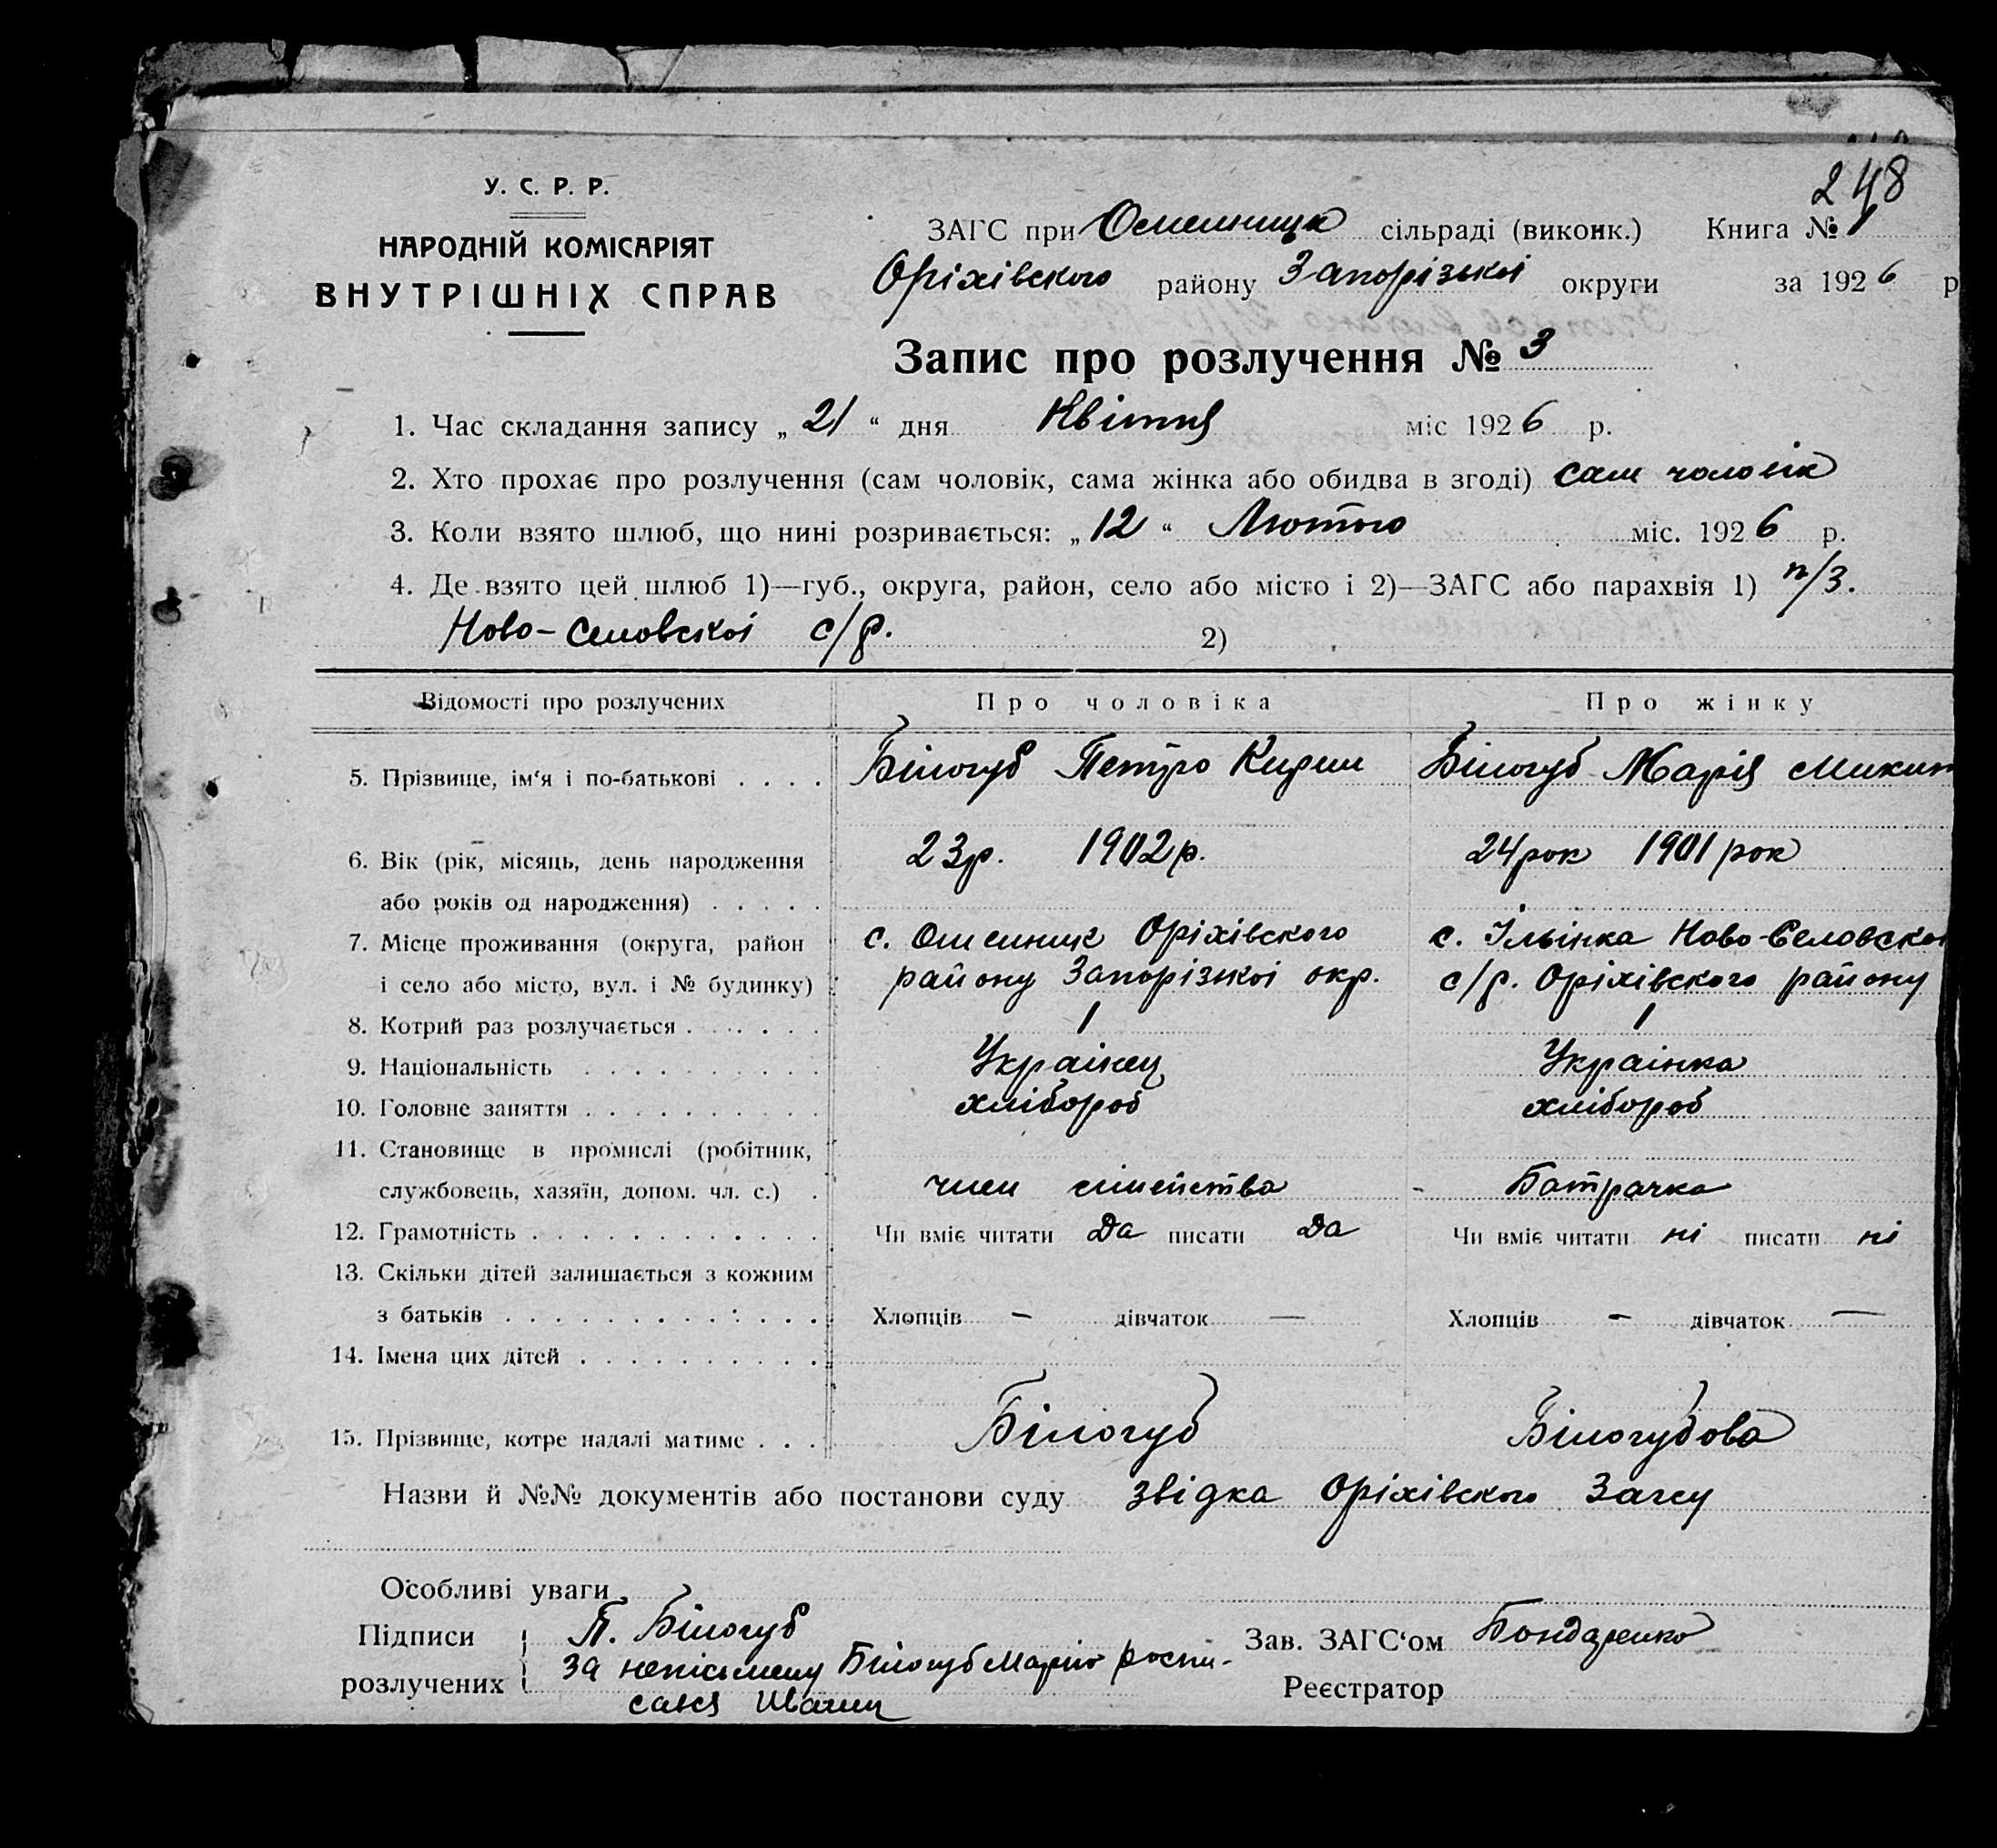 248
У. С. Р. Р.
НАРОДНІЙ КОМІСАРІЯТ
ВНУТРІШНІХ СПРАВ
ЗАГС при сільраді (виконк.) Книга № 1
Оріхівского району Запорізькоі округи за 1926 р
Запис про розлучення № 3
1. Час складання запису „ 21 “ дня Квітня міс 1926 р.
2. Хто прохає про розлучення (сам чоловік, сама жінка або обидва в згоді) сам чоловік
3. Коли взято шлюб, що нині розривається: „ 12 “ Лютого міс. 1926 р.
4. Де взято цей шлюб 1)—губ., округа, район, село або місто і 2)—ЗАГС або парахвія 1) п/з.
Ново-Селовскоі с/р. 2)
Відомості про розлучених Про чоловіка Про жінку
5. Прізвище, ім‘я і по-батькові . . . . Білогуб Петро Кирим Білогуб Марія Микит
6. Вік (рік, місяць, день народження 23р. 1902р. 24рок 1901рок
або років од народження) . . . . .
7. Місце проживання (округа, район с. Оріхівского с. Ільінка Ново-Селовскоі
і село або місто, вул. і № будинку) району Запорізькоі окр. с/р. Оріхівского району
8. Котрий раз розлучається . . . . . . 1 1
9. Національність . . . . . . . . . . Украінец Украінка
10. Головне заняття . . . . . . . . . . хлібороб хлібороб
11. Становище в промислі (робітник,
службовець, хазяїн, допом. чл. с.) . член сімейства Батрачка
12. Грамотність . . . . . . . . . . . . Чи вміє читати Да писати Да Чи вміє читати ні писати ні
13. Скільки дітей залишається з кожним
з батьків . . . . . . . . . . . . . Хлопців — дівчаток — Хлопців — дівчаток —
14. Імена цих дітей . . . . . . . . . .
15. Прізвище, котре надалі матиме . . . Білогуб Білогубова
Назви й №№ документів або постанови суду звідка Оріхівского Загсу
Особливі уваги
Підписи П. Білогуб Зав. ЗАГС‘ом Бондаренко
розлучених За непісьмену Білогуб Марію роспи-
сався Реєстратор